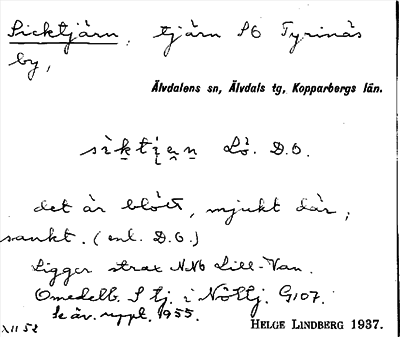 Sicktjärn, tjärn SO Tyrinäs
by,
Älvdalens sn, Älvdals tg, Kopparbergs län.
Lö. D.O.
det är blött, mjukt där,
sankt. (enl. D.O.)
Ligger strax NNO Lill-Van.
Omedelb. S tj. i Nöttj. G107.
Se äv. uppt. 1955.
XII 52
HELGE LINDBERG 1937.